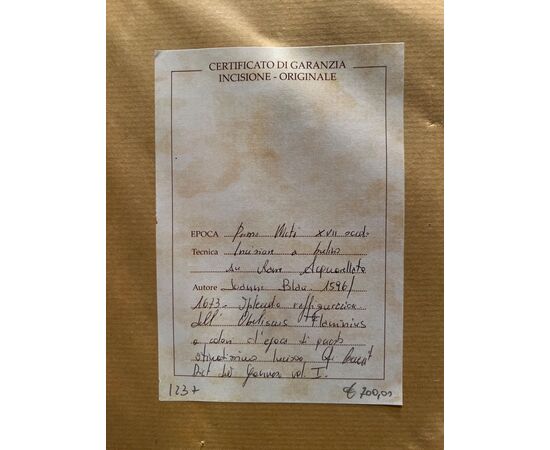 CERTIFICATO DI GARANZIA
INCISIONE - ORIGINALE
EPOCA Prima Metà XVII
Tecnica Incisione a bulino
su Rame Acquarellata
Autore Joanne Blau 1596/
1673 - Splendida raffigurazione
dell' Obeliscus Flaminius
a colori d'epoca di questo
vol. I.
123
€ 700,00